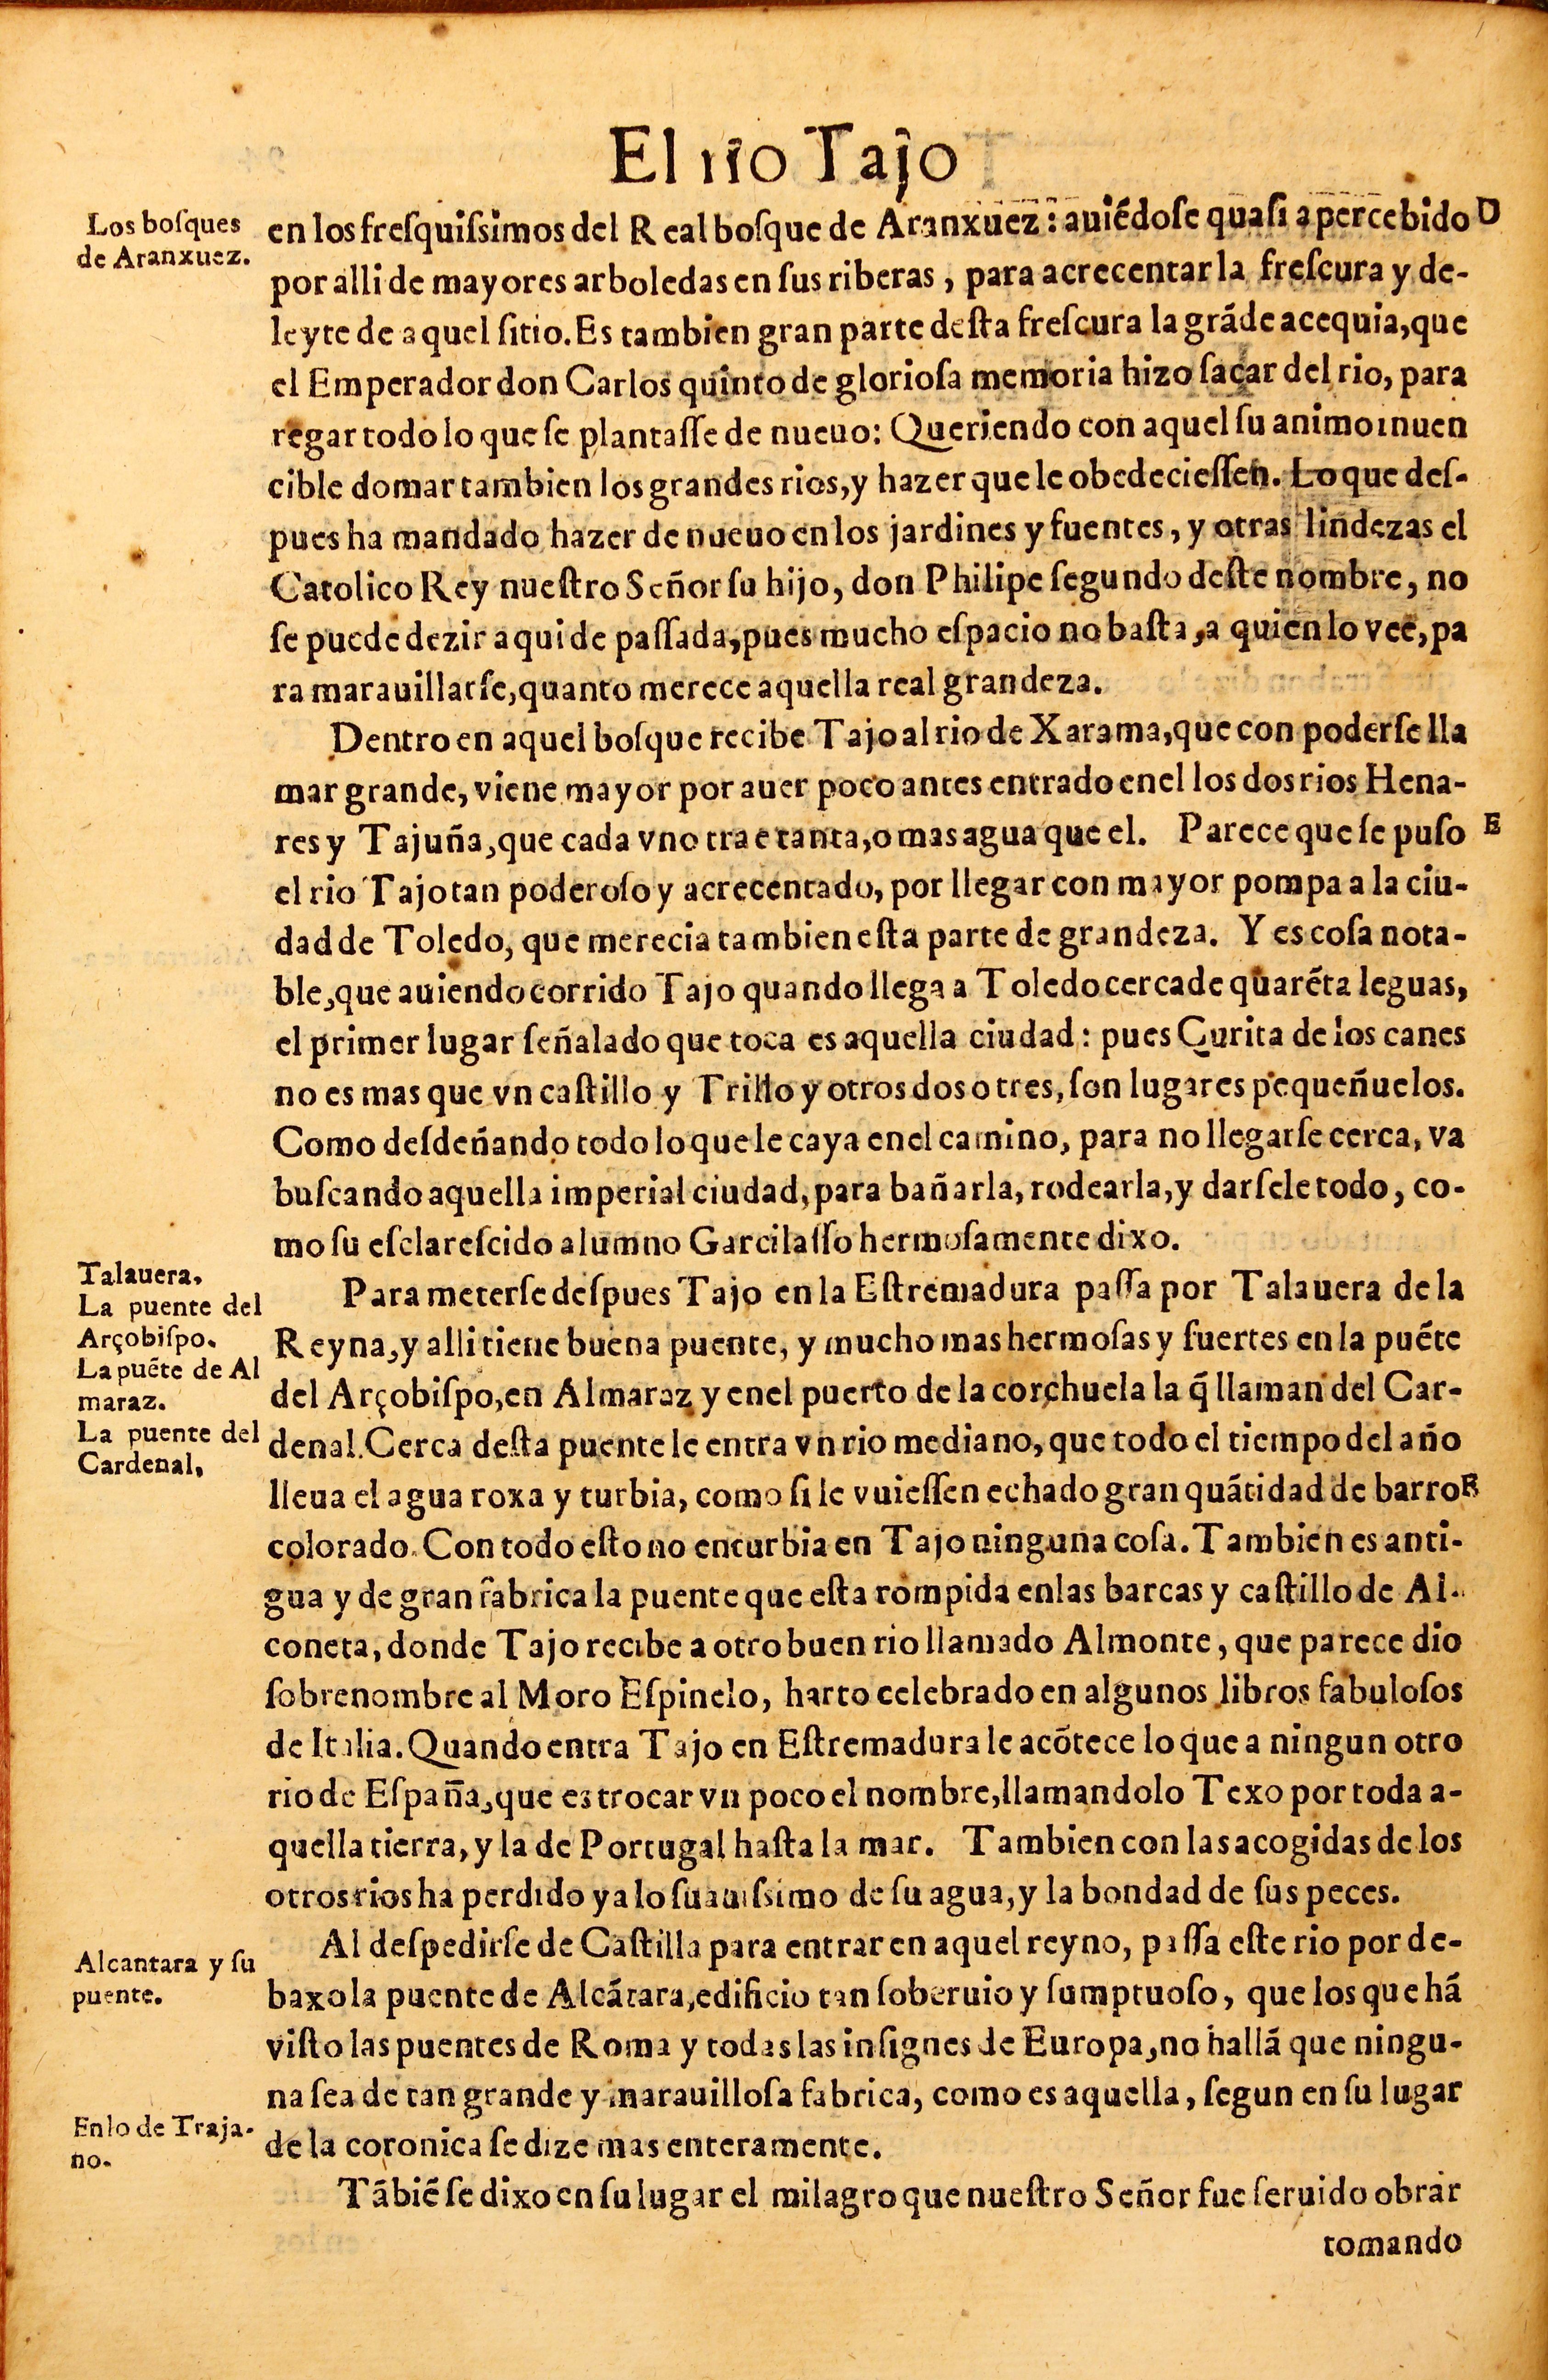 El rio Tajo
Los bosques
de Aranxuez.
en los fresquissimos del Real bosque de Aranxuez: auiẽdose quasi apercebido D
por alli de mayores arboledas en sus riberas, para acrecentar la frescura y de-
leyte de aquel sitio. Es tambien gran parte desta frescura la grãde acequia, que
el Emperador don Carlos quinto de gloriosa memoria hizo saçar del rio, para
regar todo lo que se plantasse de nueuo: Queriendo con aquel su animo inuen
cible domar tambien los grandes rios, y hazer que le obedeciessen. Lo que des-
pues ha mandado hazer de nueuo en los jardines y fuentes, y otras lindezas el
Catolico Rey nuestro Señor su hijo, don Philipe segundo deste nombre, no
se puede dezir aqui de passada, pues mucho espacio no basta, a quien lo vee, pa
ra marauillarse, quanto merece aquella real grandeza.
Dentro en aquel bosque recibe Tajo al rio de Xarama, que con poderse lla
mar grande, viene mayor por auer poco antes entrado enel los dos rios Hena-
res y Tajuña, que cada vno trae tanta, o mas agua que el. Parece que se puso E
el rio Tajo tan poderoso y acrecentado, por llegar con mayor pompa a la ciu-
dad de Toledo, que merecia tambien esta parte de grandeza. Y es cosa nota-
ble, que auiendo corrido Tajo quando llega a Toledo cerca de quarẽta leguas,
el primer lugar señalado que toca es aquella ciudad: pues Çurita de los canes
no es mas que vn castillo y Trillo y otros dos o tres, son lugares pequeñuelos.
Como desdeñando todo lo que le caya enel camino, para no llegarse cerca, va
buscando aquella imperial ciudad, para bañarla, rodearla, y darsele todo, co-
mo su esclarescido alumno Garcilasso hermosamente dixo.
Talauera.
La puente del
Arçobispo.
La puẽte de Al
maraz.
La puente del
Cardenal.
Para meterse despues Tajo en la Estremadura passa por Talauera de la
Reyna, y alli tiene buena puente, y mucho mas hermosas y fuertes en la puẽte
del Arçobispo, en Almaraz y enel puerto de la corchuela la q̃ llaman del Car-
denal. Cerca desta puente le entra vn rio mediano, que todo el tiempo del año
lleua el agua roxa y turbia, como si le vuiessen echado gran quãtidad de barro
colorado. Con todo esto no enturbia en Tajo ninguna cosa. Tambien es anti-
gua y de gran fabrica la puente que esta rompida en las barcas y castillo de Al-
coneta, donde Tajo recibe a otro buen rio llamado Almonte, que parece dio
sobrenombre al Moro Espinelo, harto celebrado en algunos libros fabulosos
de Italia. Quando entra Tajo en Estremadura le acõtece lo que a ningun otro
rio de España, que es trocar vn poco el nombre, llamandolo Texo por toda a-
quella tierra, y la de Portugal hasta la mar. Tambien con las acogidas de los
otros rios ha perdido ya lo suauissimo de su agua, y la bondad de sus peces.
Alcantara y su
puente.
Al despedirse de Castilla para entrar en aquel reyno, passa este rio por de-
baxo la puente de Alcãtara, edificio tan soberuio y sumptuoso, que los que hã
visto las puentes de Roma y todas las insignes de Europa, no hallã que ningu-
na sea de tan grande y marauillosa fabrica, como es aquella, segun en su lugar
En lo de Traja-
no.
de la coronica se dize mas enteramente.
Tãbiẽ se dixo en su lugar el milagro que nuestro Señor fue seruido obrar
tomando